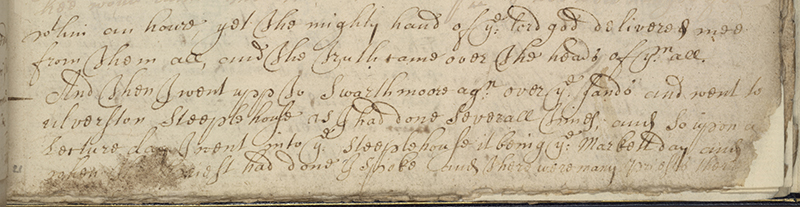 wthin an houre, yet the mighty hand of ye: lord god delivered mee
from them all, and the truth came over the heads of ym all.
And then I went upp to Swarthmoore agn over ye: sands and went to
ulverston Steeplehouse as I had done severall times, and so upon a
Lecture day I went into ye: steeplehouse it being ye: Markett day and
when had done I spoke and there were many priests there